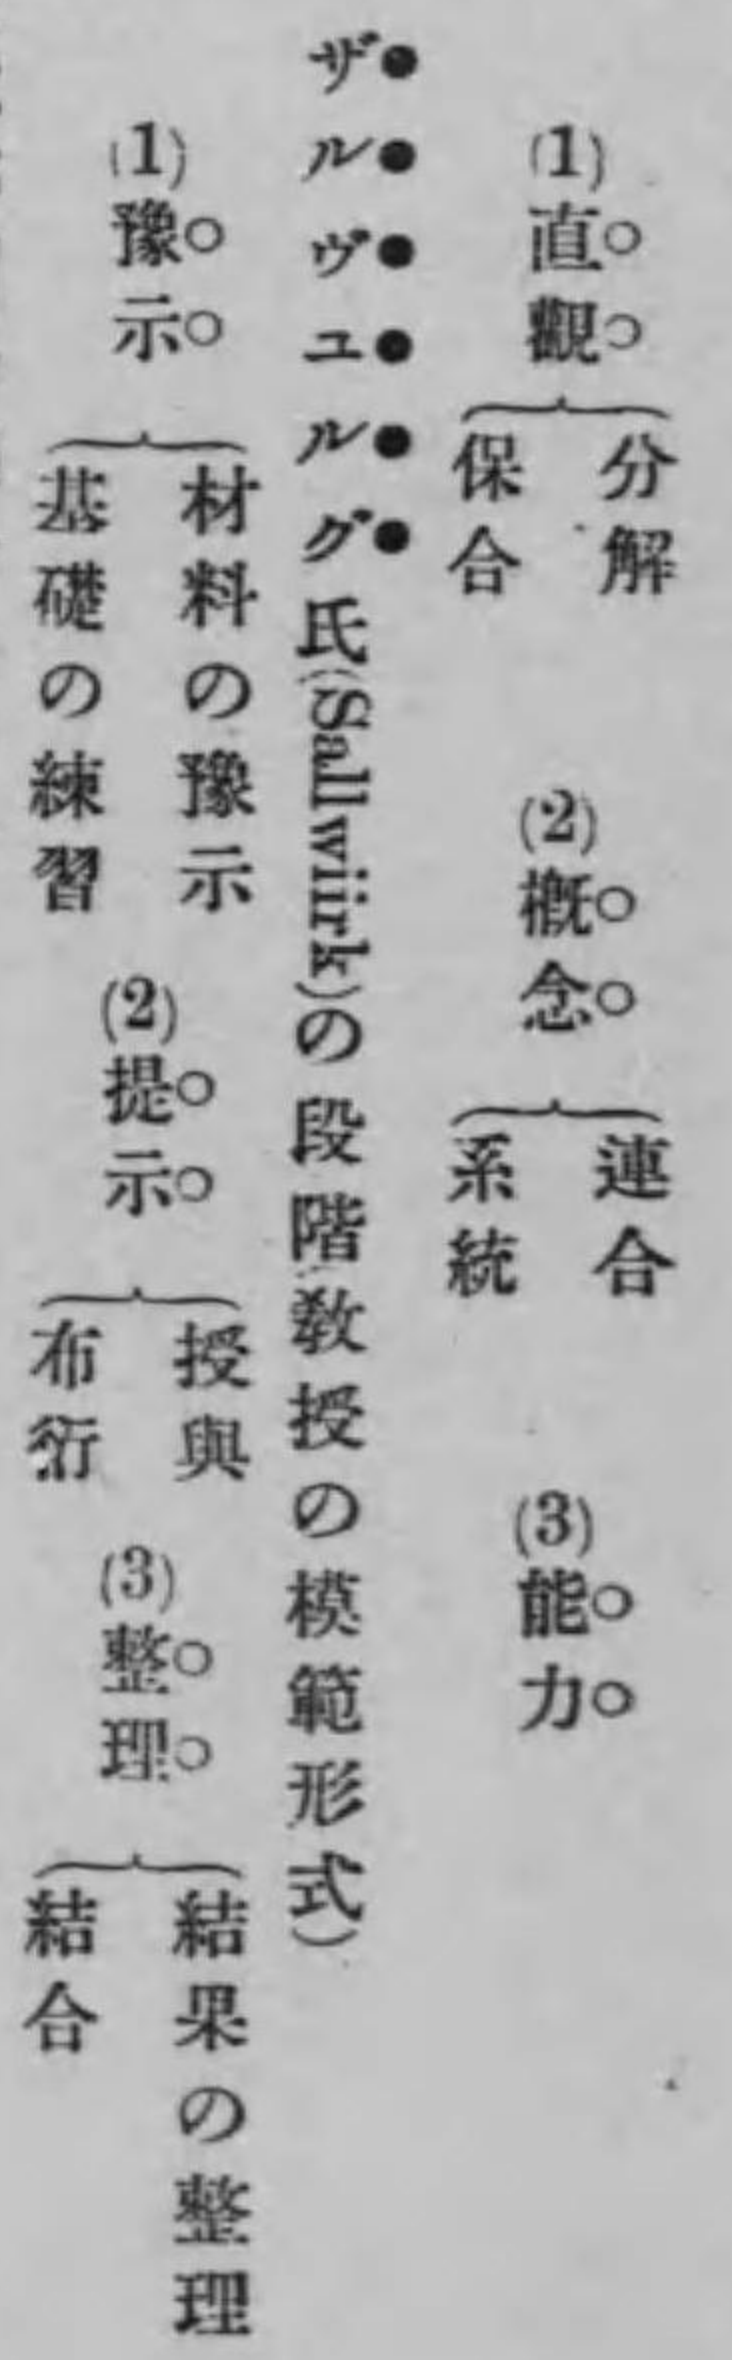 (1)直觀
分解
保合
(2)槪念
連合
系統
(3)能力
ザルヴユルグ氏(Sallwiirk)の段階教授の模範形式)
(1)豫示
材料の豫示
基礎の練習
(2)提示
授與
布衍
(3)整理
結果の整理
結合